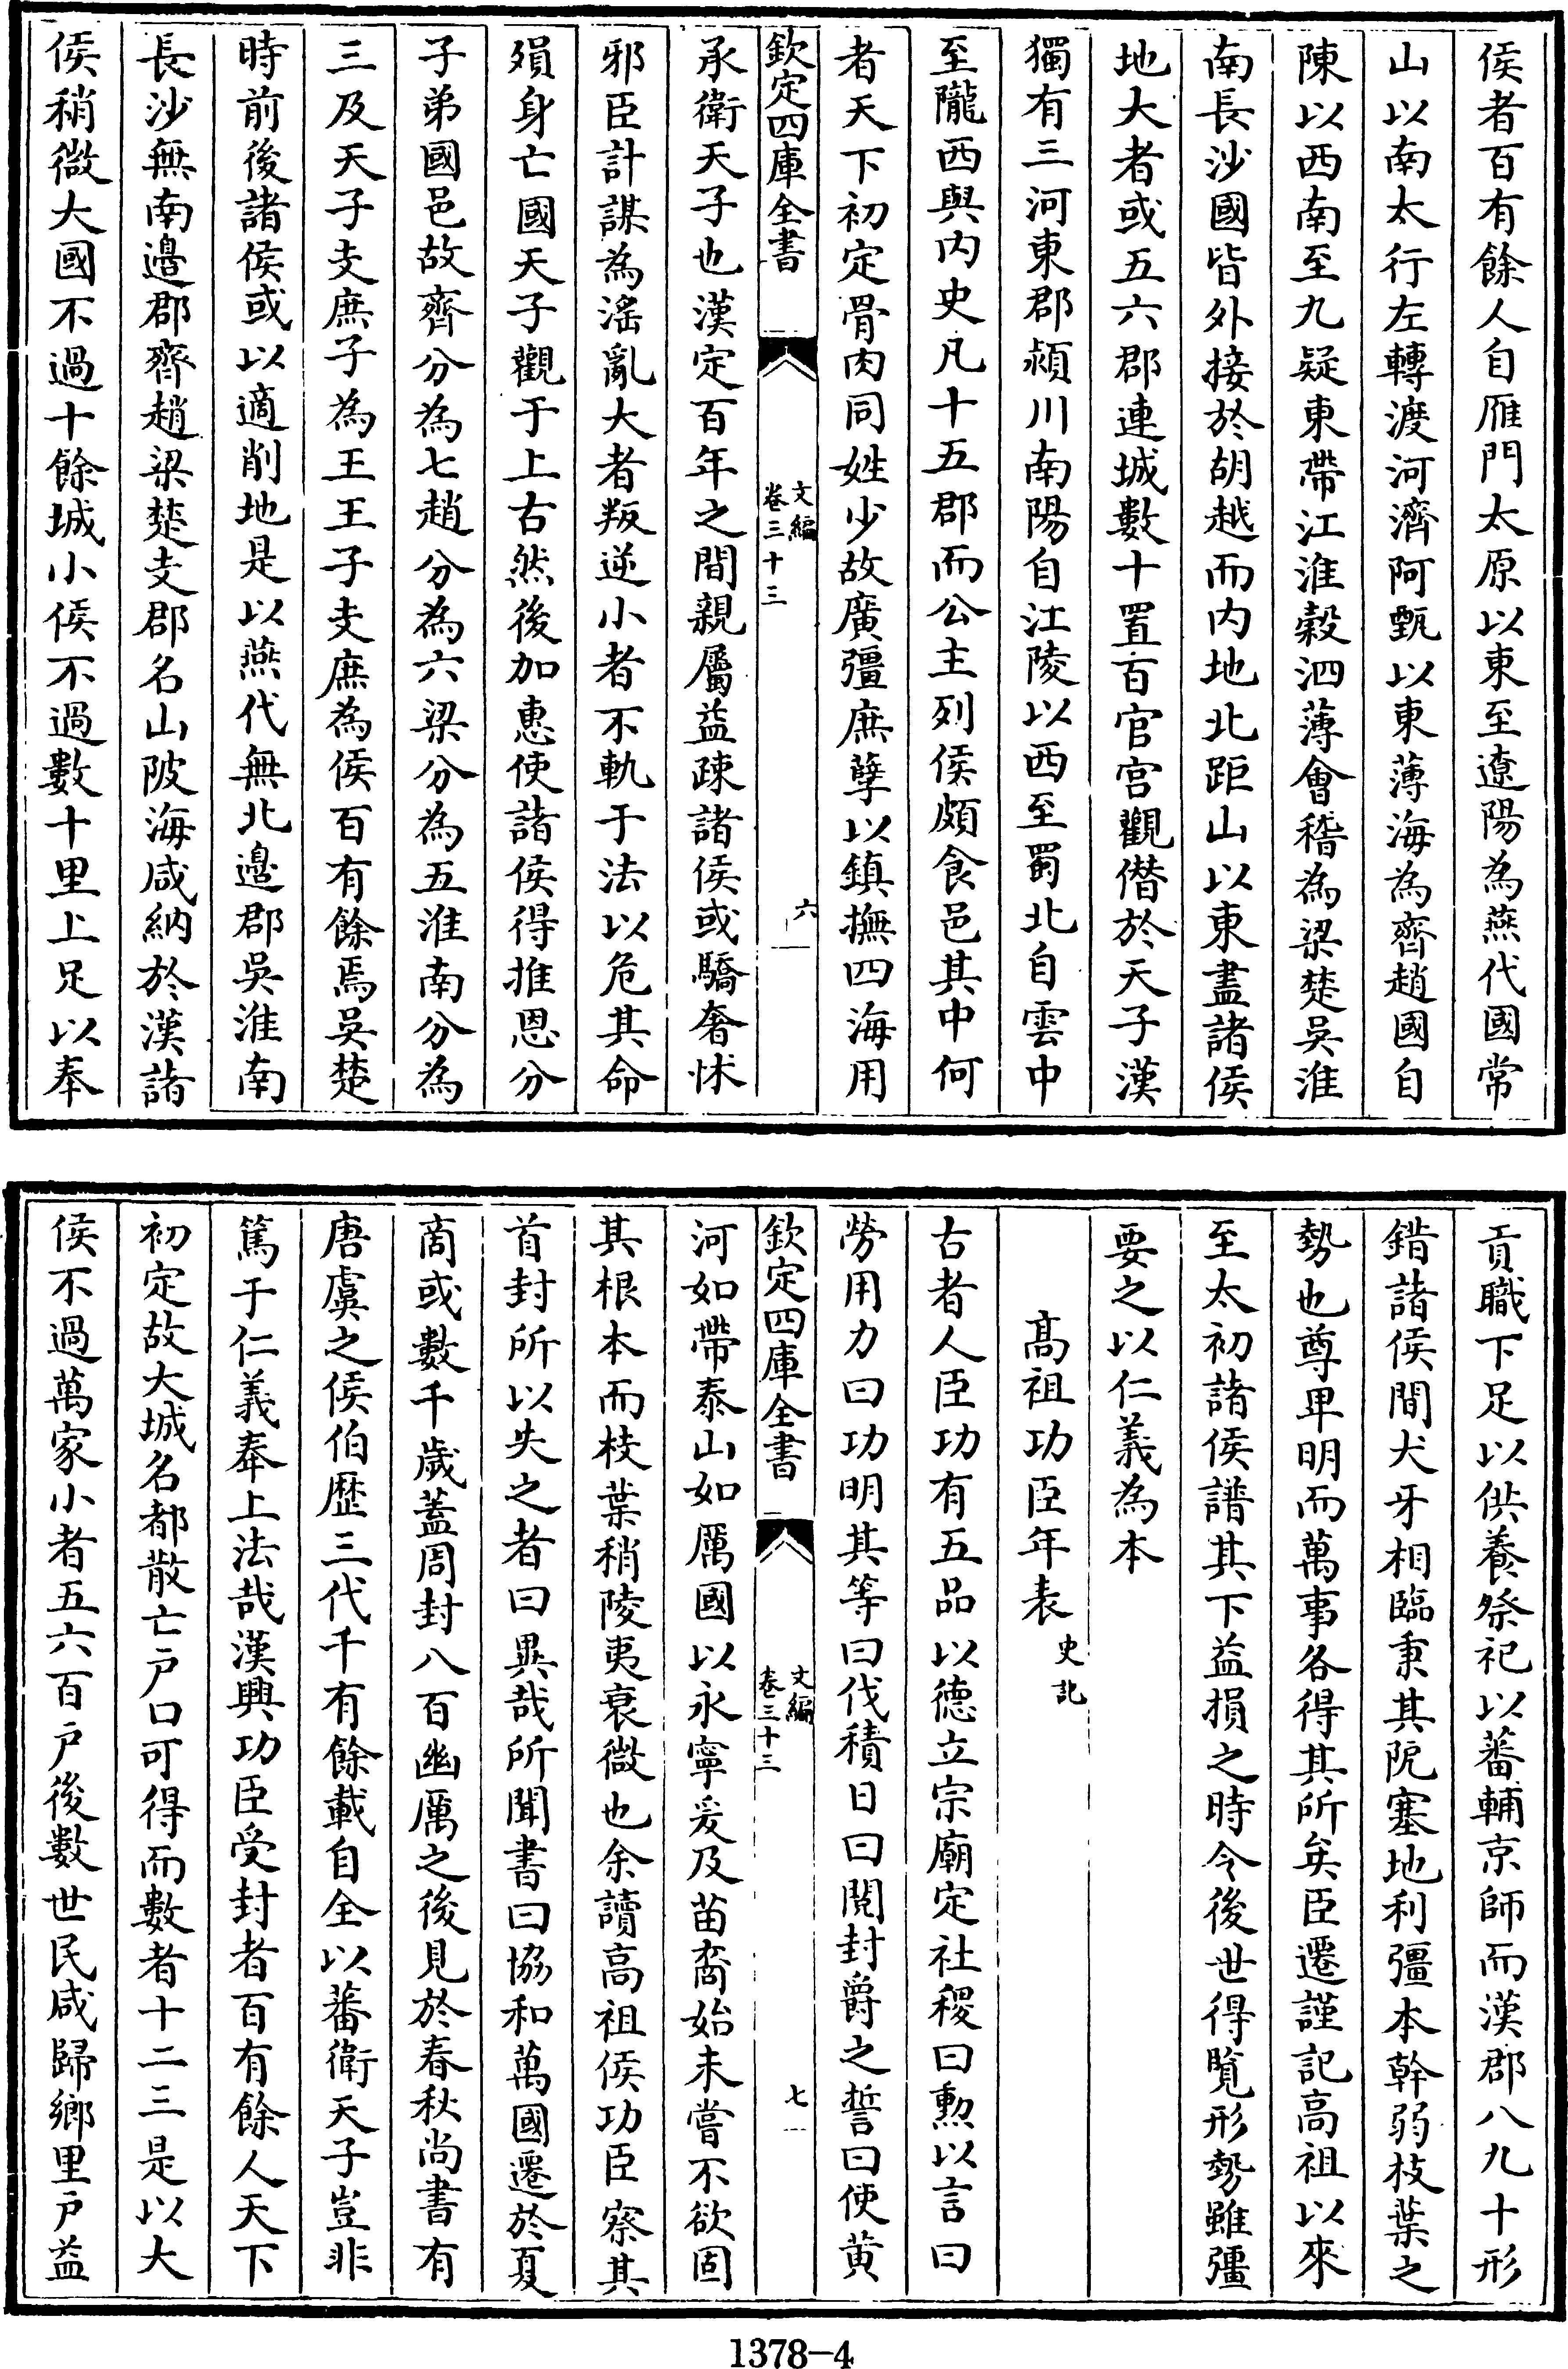 侯者百有餘人自雁門太原以東至遼陽為燕代國常
山以南太行左轉渡河濟阿甄以東薄海為齊趙國自
陳以西南至九疑東帶江淮穀泗薄會稽為梁楚吳淮
南長沙國皆外接於胡越而内地北距山以東盡諸侯
地大者或五六郡連城數十置百官宫觀僭於天子漢
獨有三河東郡潁川南陽自江陵以西至蜀北自雲中
至隴西與内史凡十五郡而公主列侯頗食邑其中何
者天下初定骨肉同姓少故廣彊庶孽以鎮撫四海用
欽定四庫全書
文編
卷三十三
六
承衛天子也漢定百年之間親屬益疎諸侯或驕奢怵
邪臣計謀為滛亂大者叛逆小者不軌于法以危其命
殞身亡國天子觀于上古然後加惠使諸侯得推恩分
子弟國邑故齊分為七趙分為六梁分為五淮南分為
三及天子支庶子為王王子支庶為侯百有餘焉吳楚
時前後諸侯或以適削地是以燕代無北邊郡吳淮南
長沙無南邊郡齊趙梁楚支郡名山陂海咸納於漢諸
侯稍微大國不過十餘城小侯不過數十里上足以奉
貢職下足以供養祭祀以蕃輔京師而漢郡八九十形
錯諸侯間犬牙相臨秉其阨塞地利彊本幹弱枝葉之
勢也尊卑明而萬事各得其所矣臣遷謹記高祖以來
至太初諸侯譜其下益損之時令後世得覧形勢雖彊
要之以仁義為本
髙祖功臣年表史記
古者人臣功有五品以德立宗廟定社稷曰勲以言曰
勞用力曰功明其等曰伐積日曰閲封爵之誓曰使黄
欽定四庫全書
文編
卷三十三
七
河如帶泰山如厲國以永寧爰及苗裔始未嘗不欲固
其根本而枝葉稍陵夷衰微也余讀高祖侯功臣察其
首封所以失之者曰異哉所聞書曰協和萬國遷於夏
商或數千歲蓋周封八百幽厲之後見於春秋尚書有
唐虞之侯伯歴三代千有餘載自全以蕃衛天子豈非
篤于仁義奉上法哉漢興功臣受封者百有餘人天下
初定故大城名都散亡户口可得而數者十二三是以大
侯不過萬家小者五六百户後數世民咸歸鄉里户益
1378-4